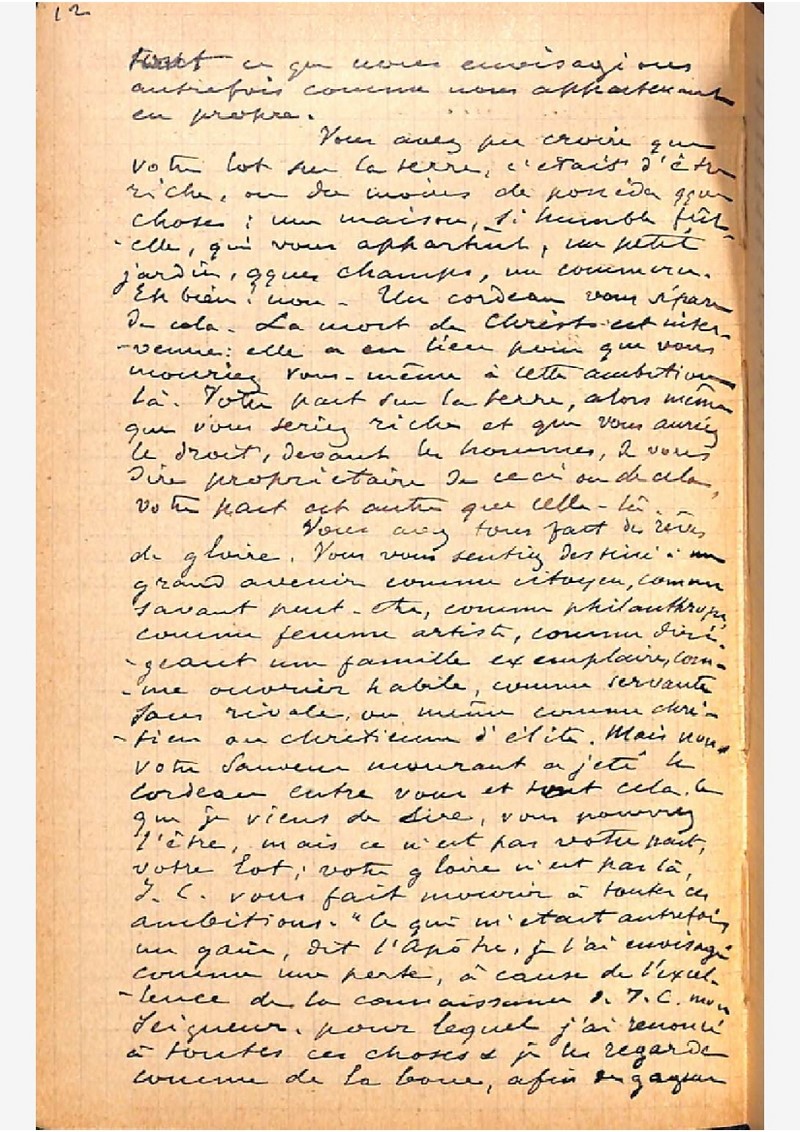 12
tout ce que nous envisagions
autrefois comme nous appartenant
en propre.
Vous avez pu croire que
votre lot sur la terre, c'était d'être
riche, ou du moins de posséder qque
chose : une maison, si humble fût-
-elle, qui vous appartînt, un petit
jardin, qques champs, un commerce.
Eh bien ! non - Un cordeau vous sépare
de cela. La mort de Christ est inter-
-venue : elle a eu lieu pour que vous
mouriez vous-même à cette ambition
là. Votre part sur la terre, alors même
que vous seriez riche et que vous auriez
le droit, devant les hommes, de vous
dire propriétaire de ceci ou de cela,
votre part est autre que celle-là.
Vous avez tous fait des rêves
de gloire. Vous vous sentiez destiné à un
grand avenir comme citoyen, comme
savant peut-être, comme philanthrope,
comme femme artiste, comme diri-
-geant une famille exemplaire, com-
-me ouvrier habile, comme servante
sans rivale, ou même comme chré-
-tien ou chrétienne d'élite. Mais non,
votre Sauveur mourant a jeté le
cordeau entre vous et tout cela. Ce
que je viens de dire, vous pouvez
l'être, mais ce n'est pas votre part,
votre lot ; votre gloire n'est pas là,
J. C. vous fait mourir à toutes ces
ambitions. "Ce qui m'était autrefois
un gain, dit l'Apôtre, je l'ai envisagé
comme une perte, à cause de l'excel-
-lence de la connaissance de J. C. mon
Seigneur, pour lequel j'ai renoncé
à toutes ces choses & je les regarde
comme de la boue, afin de gagner